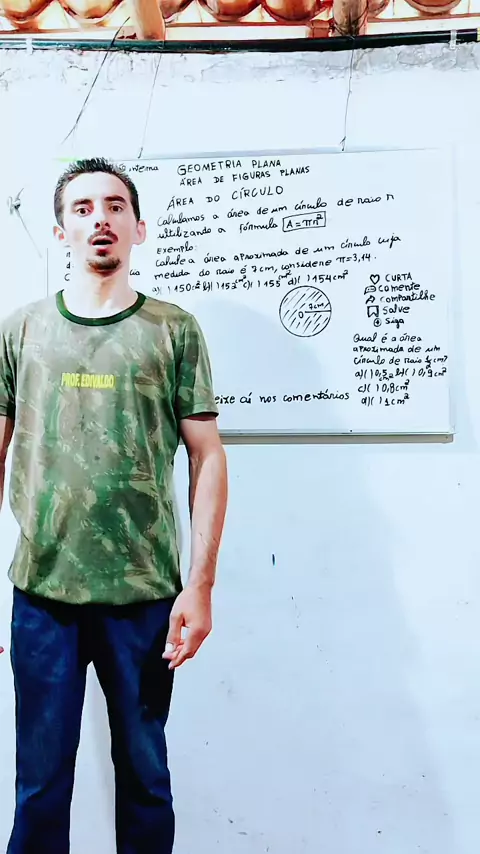 interna
GEOMETRIA PLANA
ÁREA DE FIGURAS PLANAS
ÁREA DO CÍRCULO
Calculamos a área de um círculo de raio r
utilizando a fórmula A = πr²
EXEMPLO:
Calcule a área aproximada de um círculo cuja
medida do raio é 7cm, considere π=3,14.
a)( ) 150cm² b)( ) 153cm² c)( ) 155cm² d)( ) 154cm²
7cm
CURTA
COMENTE
COMPARTILHE
SALVE
SIGA
Qual é a área
aproximada de um
círculo de raio
c)( ) 0,8cm²
d)( ) 1cm²
eixe aí nos comentários
PROF. EDIVALDO